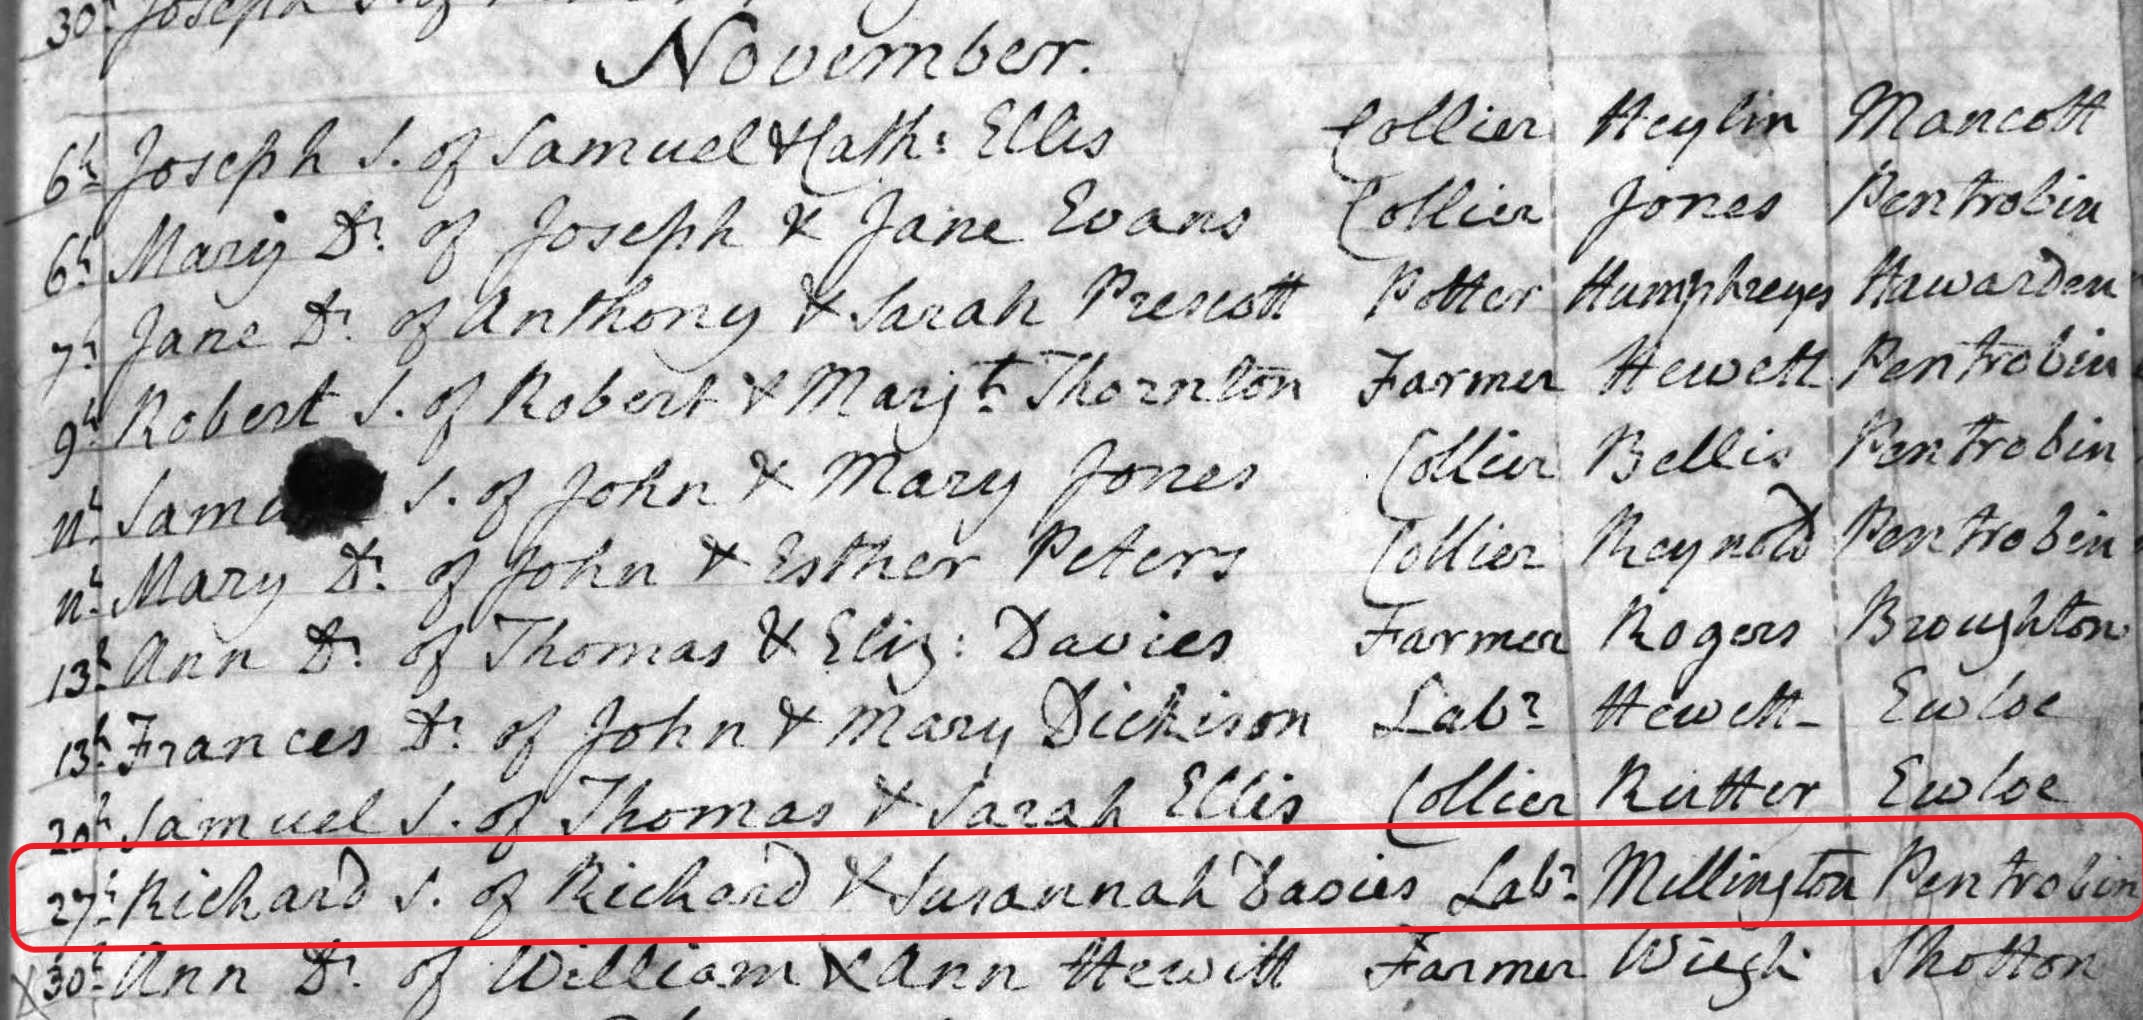 30th Joseph S. of
November.
6th Joseph S. of Samuel & Cath: Ellis Collier Heylin Mancott
6th Mary Dr. of Joseph & Jane Evans Collier Jones Pentrobin
7th Jane Dr. of Anthony & Sarah Prescott Potter Humphreyes Hawarden
9th Robert S. of Robert & Margt. Thornton Farmer Hewett Pentrobin
11th Samu S. of John & Mary Jones Collier Bellis Pentrobin
11th Mary Dr. of John & Esther Peters Collier Reynold Pentrobin
13th Ann Dr. of Thomas & Eliz: Davies Farmer Rogers Broughton
13th Frances Dr. of John & Mary Dickison Labr. Hewett Ewloe
20th Samuel S. of Thomas & Sarah Ellis Collier Rutter Ewloe
27th Richard S. of Richard & Susannah Davies Labr. Millington Pentrobin
X 30th Ann Dr. of William & Ann Hewitt Farmer Shotton